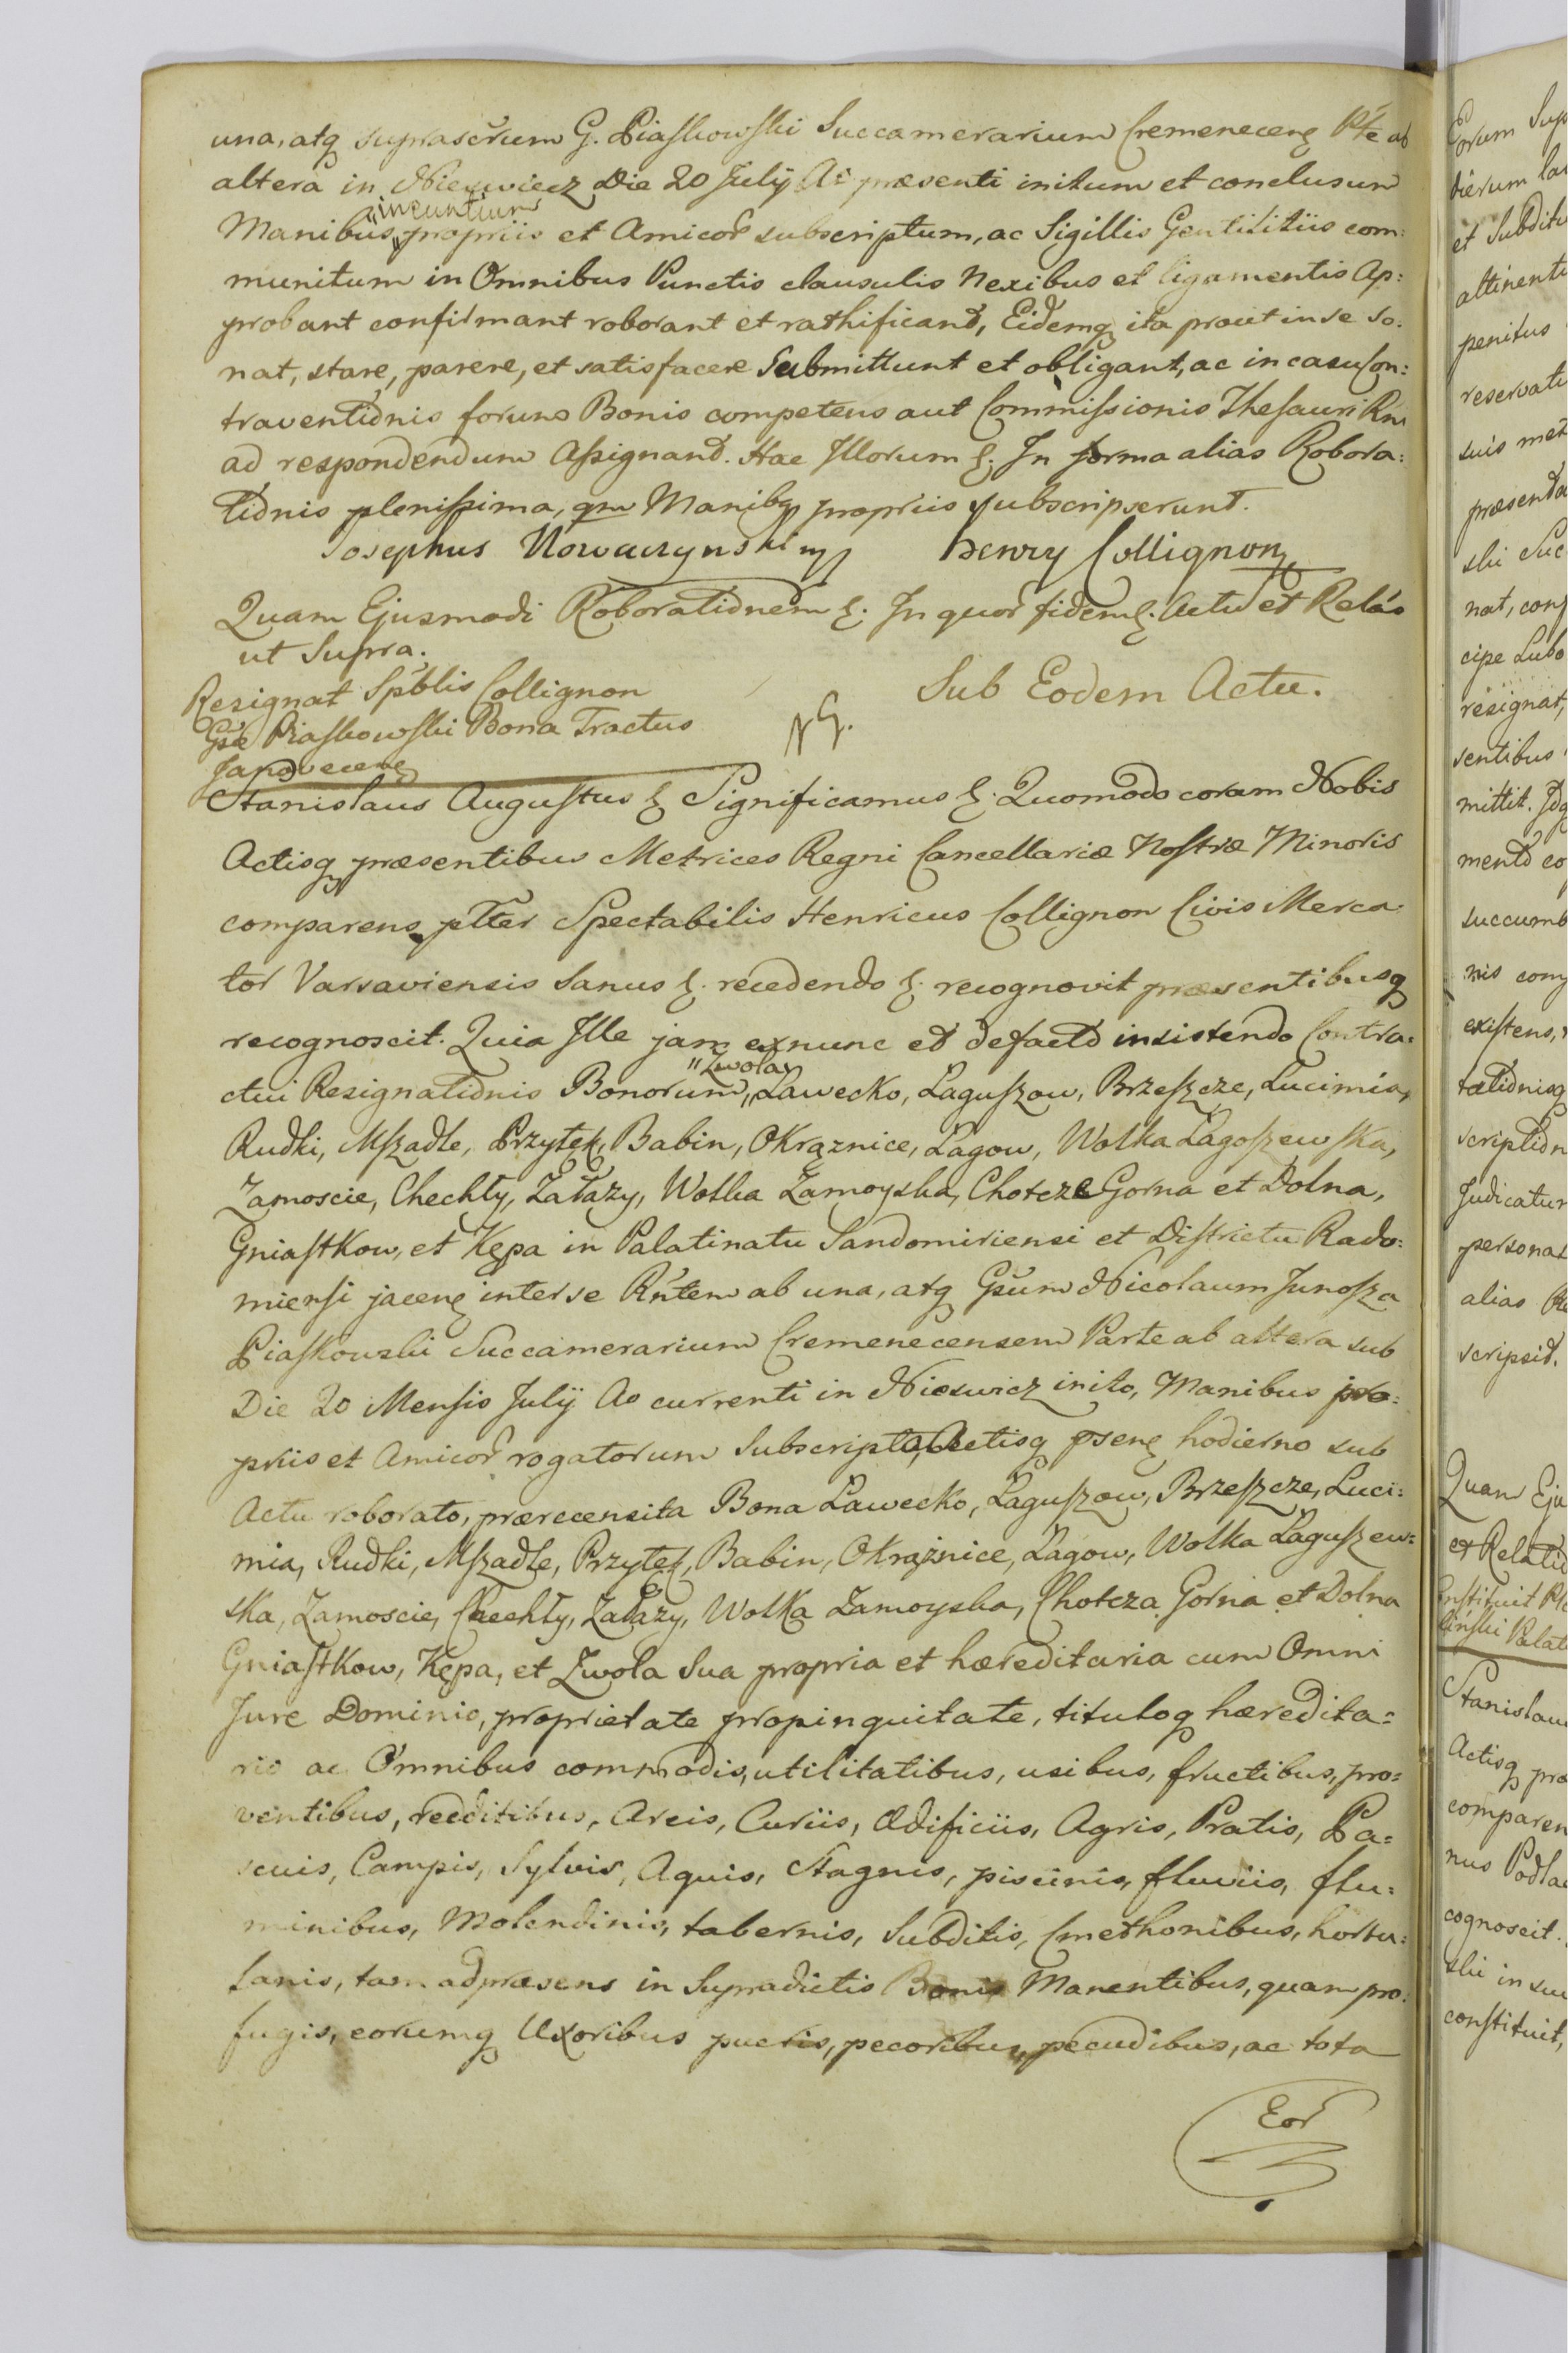 una, atq suprascrum G. Piaskowski Succamerarium Cremenecens Pte ab
altera in Nieswiecz Die 20 July Ai præsenti initum et conclusum
"ineuntium
Manibus propriis et Amicor subscriptum, ac Sigillis Gentilitiis com:
munitum in Omnibus Punctis clausulis Nexibus et ligamentis Ap:
probant confirmant roborant et rathificant, Eidemq ita prout in se so:
nat, stare, parere, et satisfacere Submittunt et obligant, ac in casu Con:
traventionis forum Bonis competens aut Commissionis Thesauri Rni
ad respondendum Assignand. Hac Illorum &. In forma alias Robora:
tionis plenissima, qm Manibq propriis subscripserunt.
Josephus Nowaczynski mp Henry Collignon
Quam Ejusmodi Roborationem &. In quor fidem &. Actu et Relao
ut Supra.
Sub Eodem Actu.
Resignat Spblis Collignon
Gso Piaskowski Bona Tractus
Janovecens
Stanislaus Augustus & Significamus &. Quomodo coram Nobis
Actisq præsentibus Metrices Regni Cancellariæ Nostræ Minoris
comparens pltter Spectabilis Henricus Collignon Civis Merca:
tor Varsaviensis Sanus &. recedendo &. recognovit præsentibusq
recognoscit. Quia Ille jam exnunc et defacto insistendo Contra:
"Zwola,
ctui Resignationis Bonorum, Ławecko, Łaguszow, Brzeszcze, Lucimia,
Rudki, Mszadle, Przyłęk, Babin, Okrąznice, Łagow, Wolka Łagoszewska,
Zamoscie, Chechły, Załazy, Wolka Zamoyska, Chotcze Gorna et Dolna,
Gniastkow, et Kępa in Palatinatu Sandomiriensi et Districtu Rado:
miensi jacens inter se Rntem ab una, atq Gsum Nicolaum Junosza
Piaskowski Succamerarium Cremenecensem Parte ab altera sub
Die 20 Mensis July Ao currenti in Nieswicz inito, Manibus pro:
priis et Amicor rogatorum Subscripto, Actisq psens hodierno sub
Actu roborato, præcensita Bona Ławecko, Łaguszow, Brzeszcze, Luci:
mia, Rudki, Mszadle, Przyłęk, Babin, Okrąznice, Łagow, Wolka Łaguszew:
ska, Zamoscie, Chechły, Załazy, Wolka Zamoyska, Chotcza Gorna et Dolna
Gniastkow, Kępa, et Zwola Sua propria et hæreditaria cum Omni
Jure Dominio, proprietate propinquitate, tituloq hæredita=
rio ac Omnibus commodis, utilitatibus, usibus, fructibus, pro=
ventibus, redditibus, Areis, Curiis, Ædificiis, Agris, Pratis, Pa=
scuis, Campis, Sylvis, Aquis, Stagnis, piscinis, fluviis, flu=
minibus, Molendinis, tabernis, Subditis, Cmethonibus, hortu=
lanis, tam ad præsens in Supradictis Bonis Manentibus, quam pro:
fugis, eorumq Uxoribus pueris, pecoribus, pecudibus, ac tota
Eor
Eorum Sup
et Subdit
penitus
præsenta
nat, conf
cipe Lubo
resignat,
sentibus
mittit. Idq
mento eo
succumb
nis comp
existens,
Judicatur
personal
alias
scripsit.
Quam Eju
et Relatio
Stanislau
Actisq præ
comparen
nus Podla
cognoscit.
ski in su
constituit,